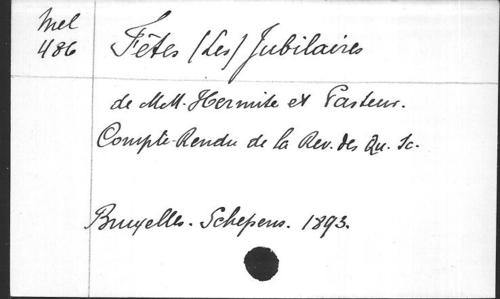 Mel
486
Fêtes (Les) Jubilaires
de MM. Hermite et Pasteur.
Compte-Rendu de la Rev. des Qu. Sc.
Bruxelles. Schepens. 1893.